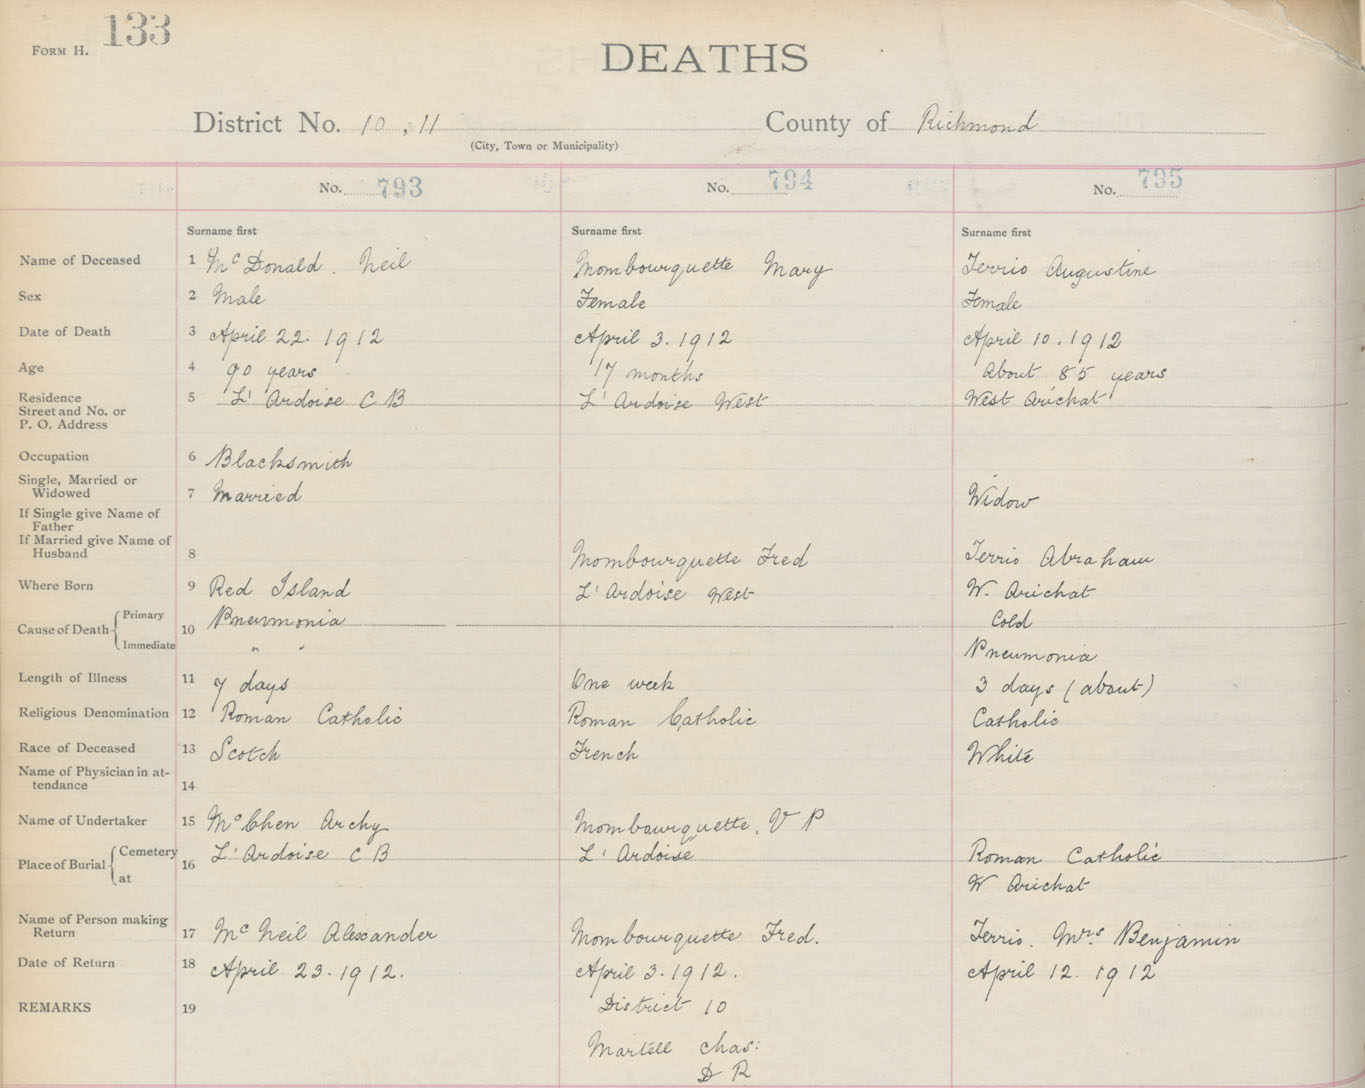 FORM H. 133
DEATHS
District No. 10, 11 County of Richmond
(City, Town or Municipality)
No. 793 No. 794 No. 795
Surname first Surname first Surname first
Name of Deceased 1 McDonald. Neil Mombourquette Mary Terrio Augustine
Sex 2 Male Female Female
Date of Death 3 April 22. 1912 April 3. 1912 April 10. 1912
Age 4 90 years 17 months About 85 years
Residence 5 L'Ardoise C B L'Ardoise West West Arichat
Street and No. or
P. O. Address
Occupation 6 Blacksmith
Single, Married or
Widowed 7 Married Widow
If Single give Name of
Father
If Married give Name of
Husband 8 Mombourquette Fred Terrio Abraham
Where Born 9 Red Island L'Ardoise West W. Arichat
Cause of Death Primary 10 Pneumonia Cold
Immediate " " Pneumonia
Length of Illness 11 7 days One week 3 days (about)
Religious Denomination 12 Roman Catholic Roman Catholic Catholic
Race of Deceased 13 Scotch French White
Name of Physician in at-
tendance 14
Name of Undertaker 15 Archy Mombourquette, V P
Place of Burial Cemetery 16 L'Ardoise C B L'Ardoise Roman Catholic
at W Arichat
Name of Person making
Return 17 McNeil Alexander Mombourquette Fred. Terrio. Mrs Benjamin
Date of Return 18 April 23. 1912. April 3. 1912. April 12. 1912
REMARKS 19 District 10
Martell Chas:
D R